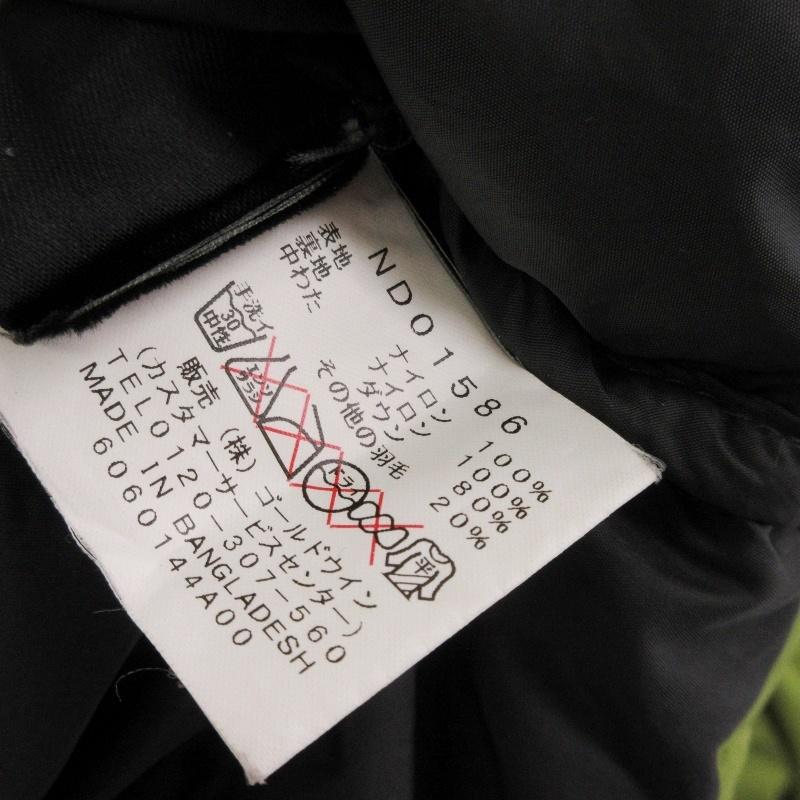 NDO1586
表地 ナイロン 100%
裏地 ナイロン 100%
中わた ダウン 80%
その他の羽毛 20%
手洗イ
30
中性
エンソ
サラシ
ドライ
平
販売 (株)ゴールドウイン
(カスタマーサービスセンター)
TEL0120-307-560
MADE IN BANGLADESH
6060144A00